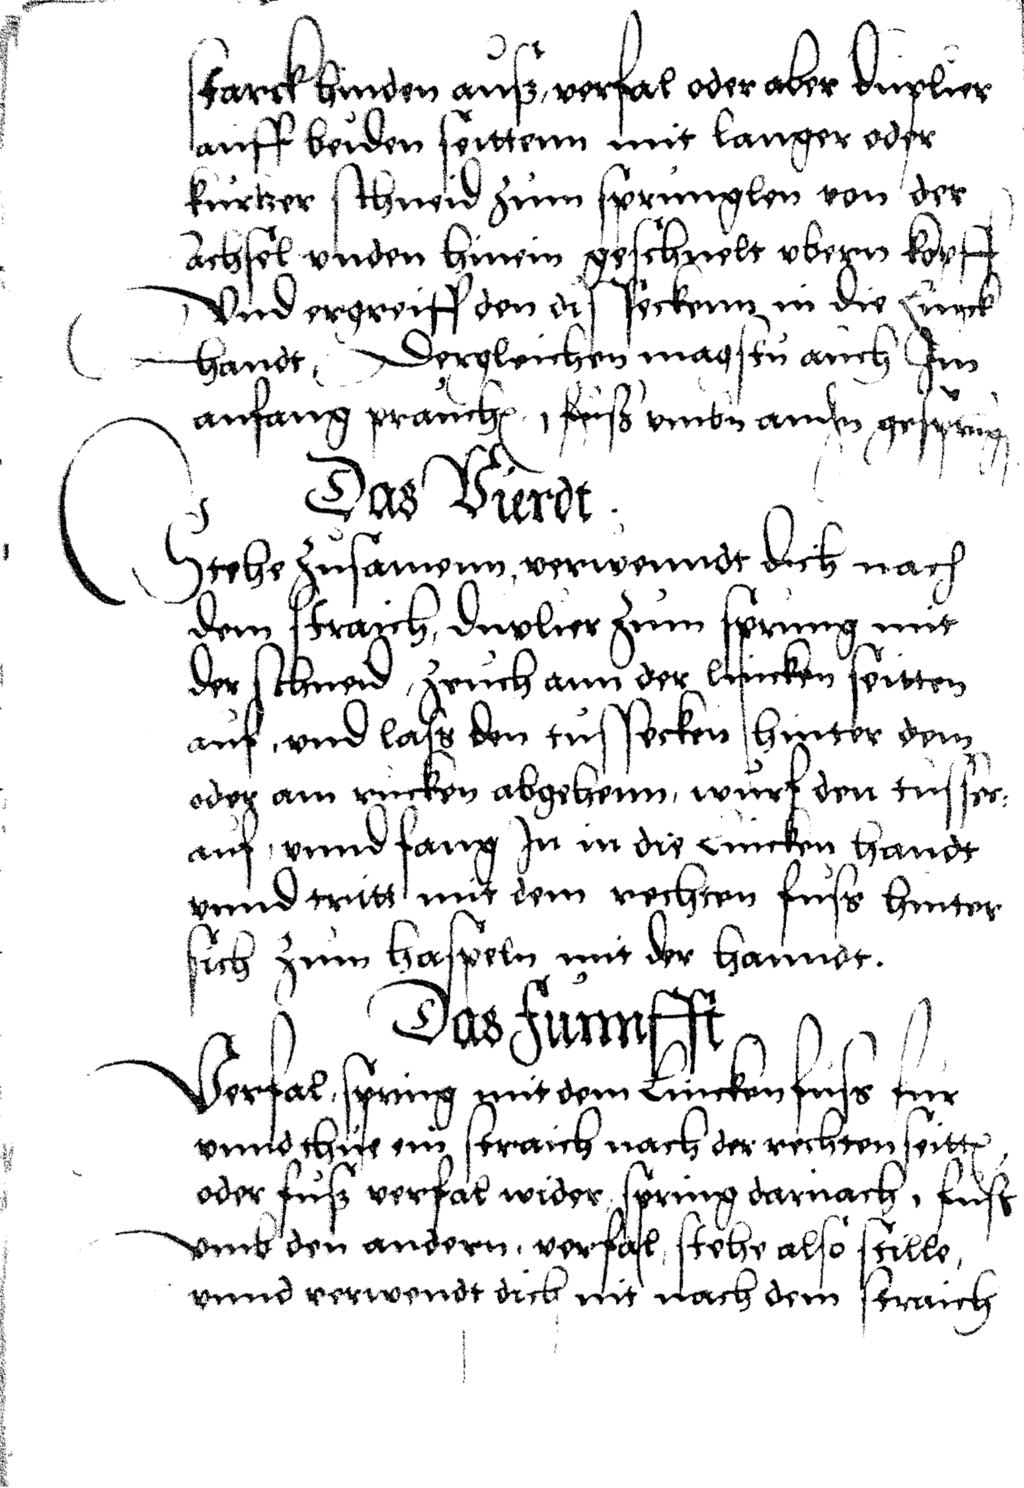 starck hinden auß, verfal oder aber duplier
auff beiden seittenn mit langer oder
kurtzer schneid zum sprunglen von der
Achsel vnden hinein geschnelt vbern kopff
Vnd ergreiff den disseckenn in die Linck
handt, Dergleichen magstu auch Im
anfang prauch, 1 fuß vmbn andn gesprung
Das Vierdt.
Stehe zusamenn, verwenndt dich nach
dem straich, duplier zum sprung mit
der schneid, zeuch ann der lincken seitten
auf, vnd lass den tussecken hinter dem
oder am rucken abgehenn, wurf den tussec:
auf, vnnd fang In in die Lincken handt
vnnd tritt mit dem rechten fuss hinter
sich zum haspeln mit der hanndt.
Das funnfft
Verfal, spring mit dem Lincken fuss fur
vnnd thue ein straich nach der rechten seitt,
oder fuß verfal wider, spring darnach, 1 fuss
vmb den andern, verfal, stehe also stille,
vnnd verwendt dich nit nach dem straich